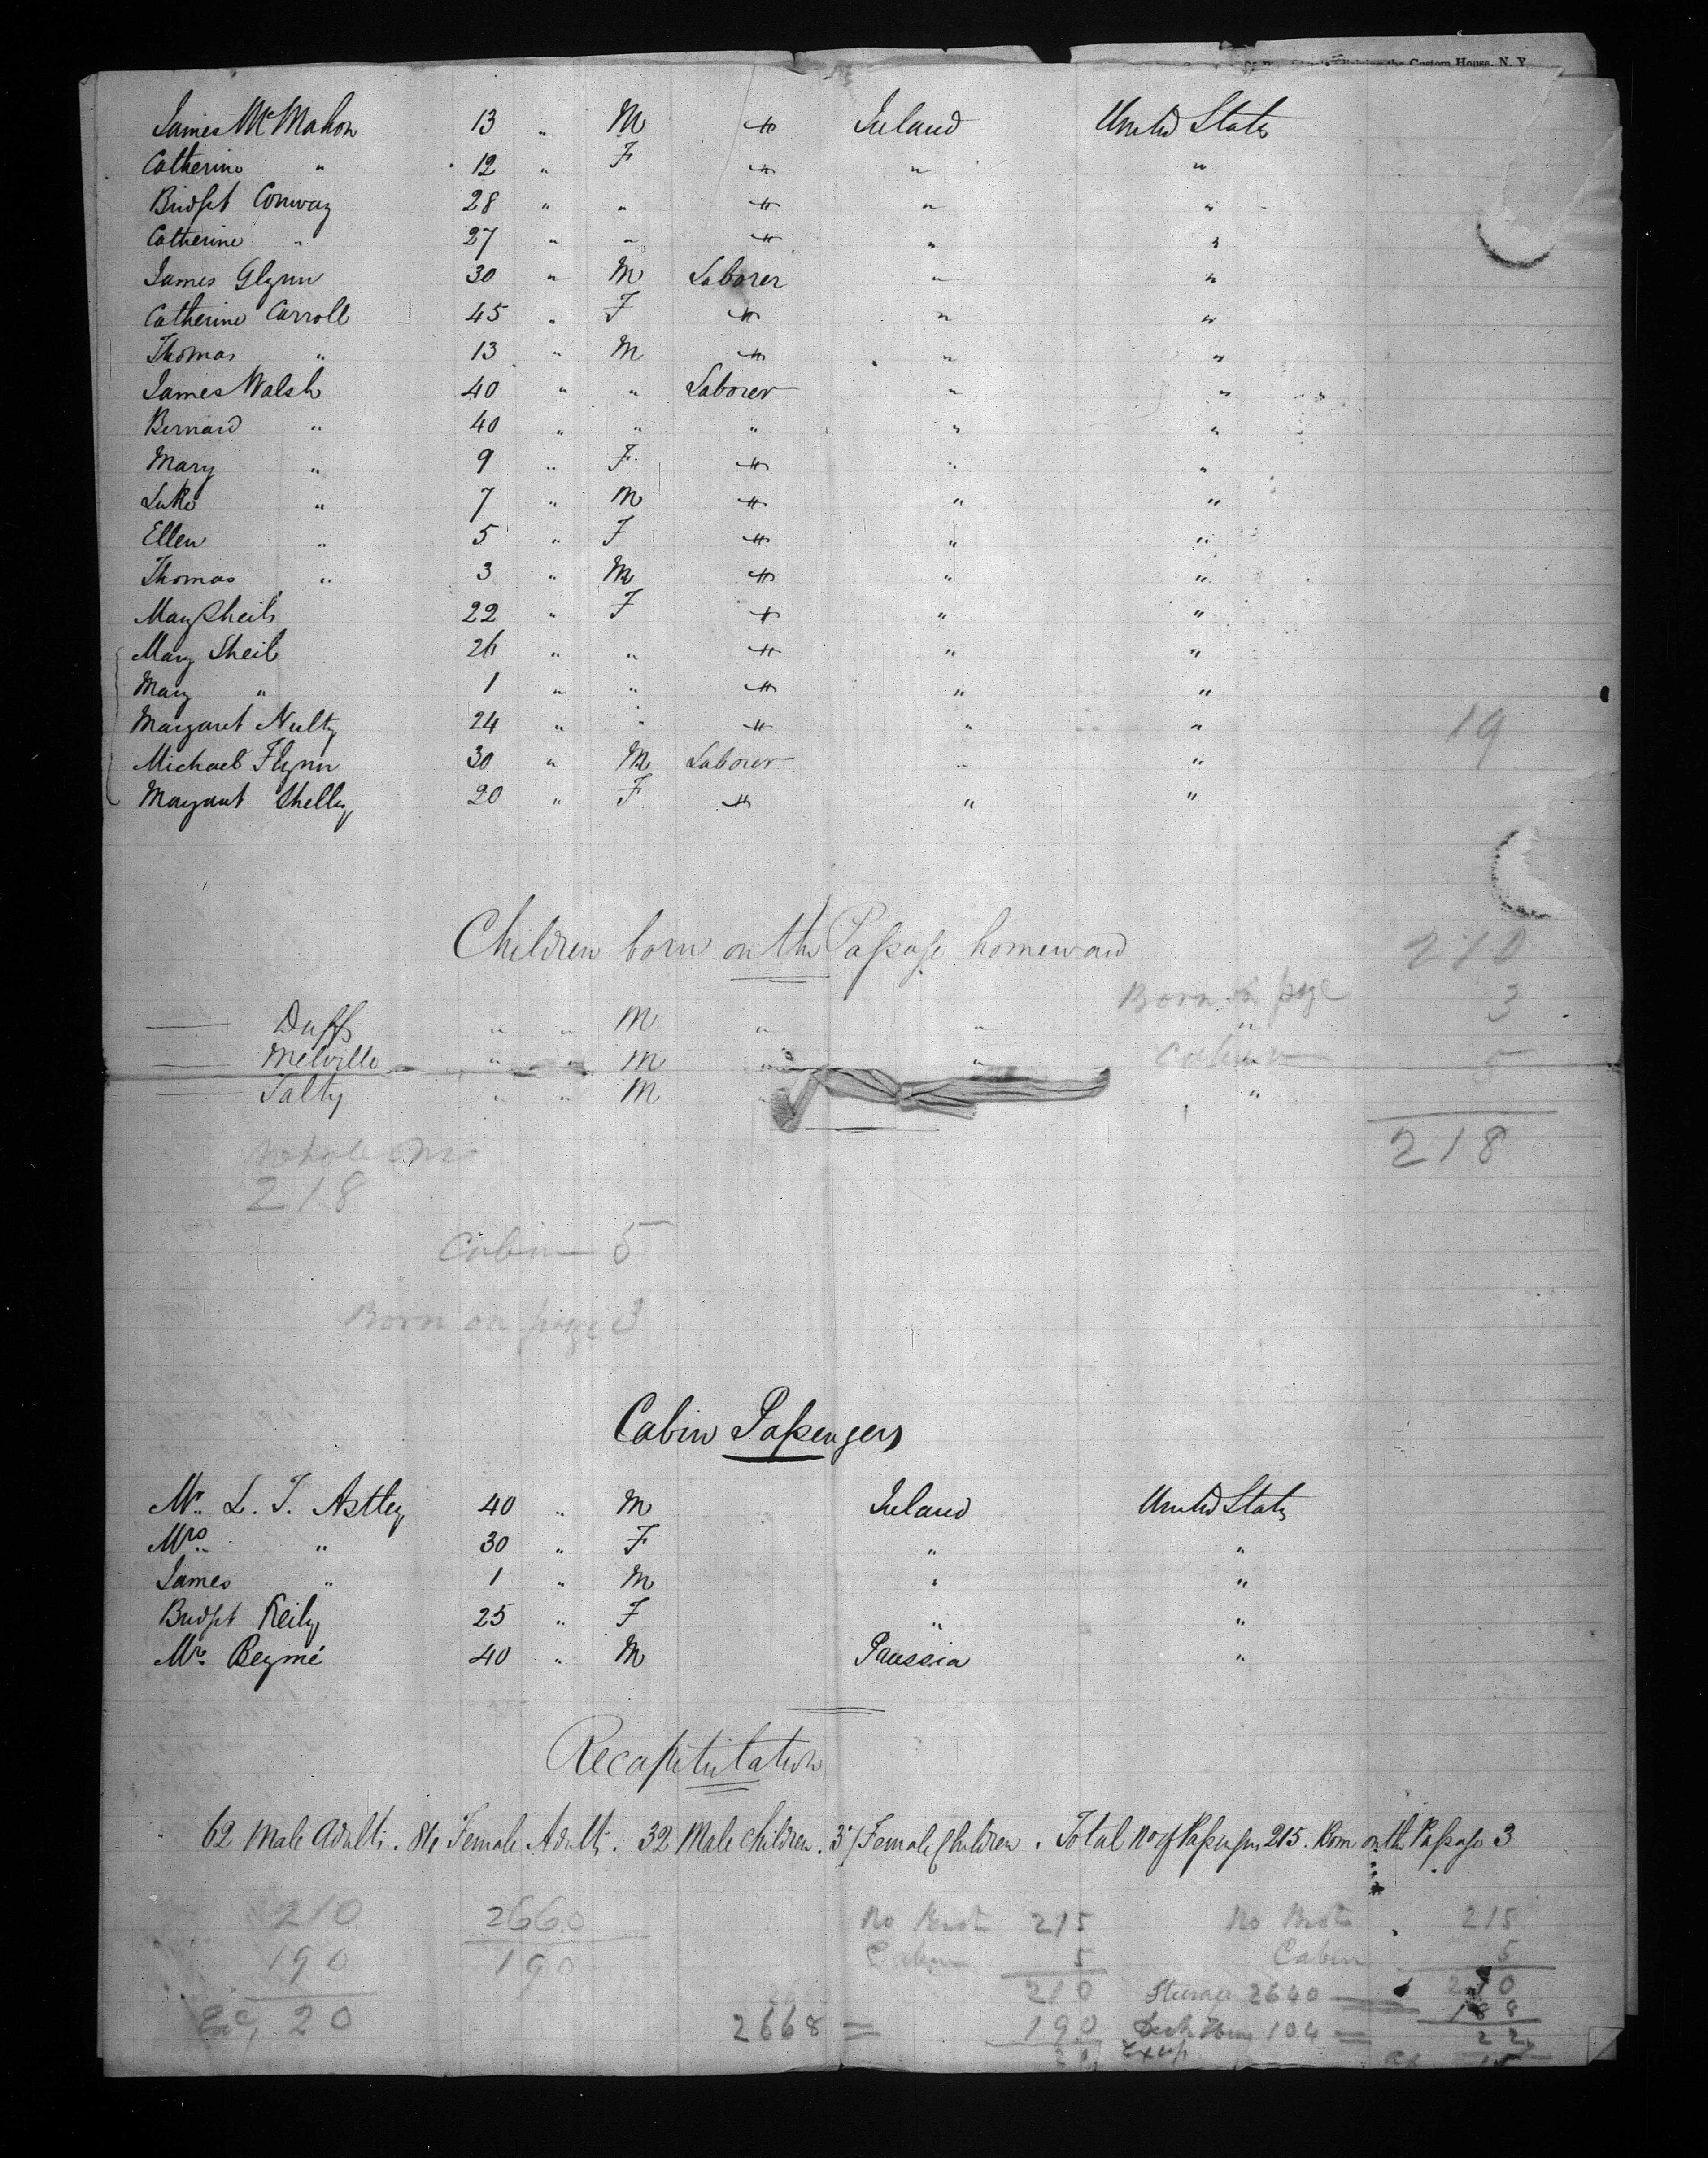 the Custom House, N. Y.
James McMahon 13 " M " Ireland United States
Catherine " 12 " F " " "
Bridget Conway 28 " " " " "
Catherine " 27 " " " " "
James Glynn 30 " M Laborer " "
Catherine Carroll 45 " F " " "
Thomas " 13 " M " " "
James Walsh 40 " " Laborer " "
Bernard " 40 " " " " "
Mary " 9 " F " " "
Luke " 7 " M " " "
Ellen " 5 " F " " "
Thomas " 3 " M " " "
Mary Sheils 22 " F " " "
Mary Sheil 26 " " " " "
Mary " 1 " " " " "
Margaret Nulty 24 " " " " " 19
Michael Flynn 30 " M Laborer " "
Margaret Shelly 20 " F " " "
Children born on the Passage homeward 210
Born on psge 3
Duffy " " M " " "
Melville " " M " " Cabin 5
Talty " " M " "
218
Whole No
218
Cabin 5
Born on psge 3
Cabin Passengers
Mr. L. T. Astley 40 " M Ireland United States
Mrs. " 30 " F " "
James " 1 " M " "
Bridget Reily 25 " F " "
Mr. Beymé 40 " M Prussia "
Recapitulation
62 Male Adults. 84 Female Adults. 32 Male Children. 37 Female Children. Total No of Passengers 215. Born on the Passage 3
210 2660 No 215 No 215
190 190 Cabin 5 Cabin 5
210 Steerage 2640 210
20 2668 = 190 104 = 188
22